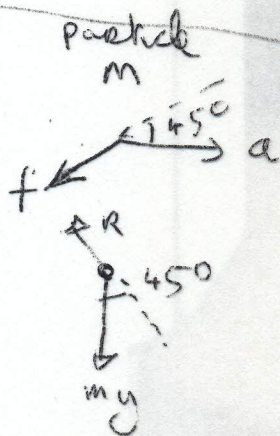 particle
m
45°
a
f
R
45°
mg